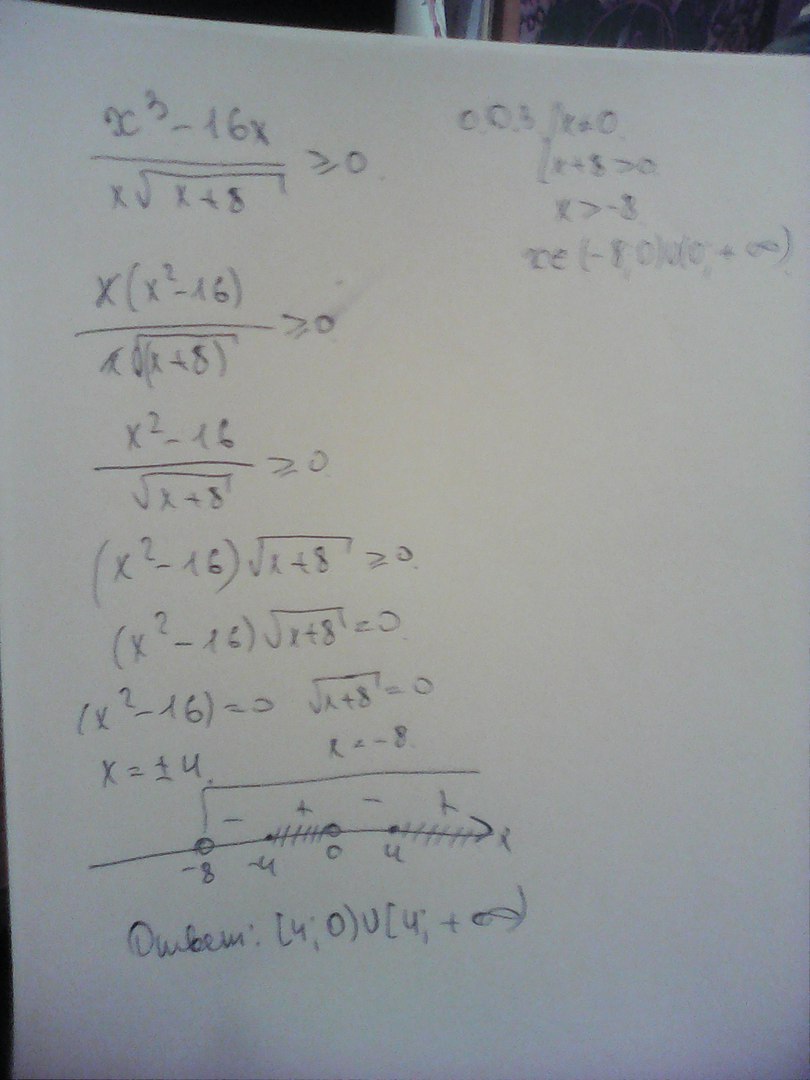 x³ - 16x
x√x+8 ≥ 0
О.О.З x ≠ 0.
x+8 > 0
x > -8
x ∈ (-8; 0)∪(0; + ∞)
x(x² - 16)
x√(x+8) ≥ 0
x² - 16
√x+8 ≥ 0
(x² - 16)√x+8 ≥ 0.
(x² - 16)√x+8 = 0
(x² - 16) = 0 √x+8 = 0
x = ±4. x = -8.
- + - +
-8 -4 0 4 x
Ответ: [4; 0)∪[4; + ∞)